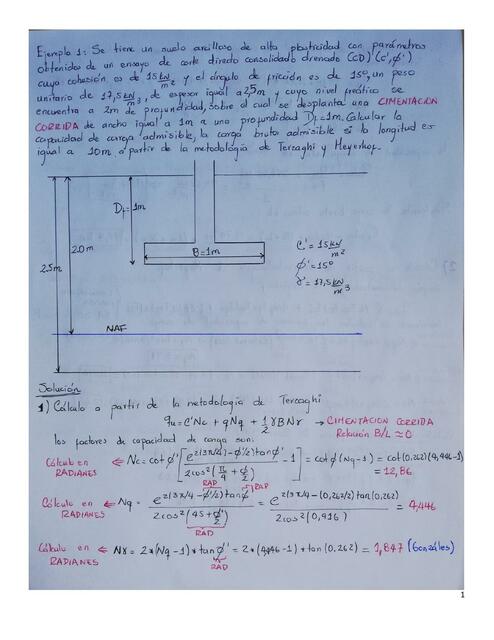 Ejemplo 1: Se tiene un suelo arcilloso de alta plasticidad con parámetros
obtenidos de un ensayo de corte directo consolidado drenado (CD) (c',φ')
cuya cohesión es de 15 kN/m² y el ángulo de fricción es de 15°, un peso
unitario de 17,5 kN/m³, de espesor igual a 2,5m y cuyo nivel freático se
encuentra a 2m de profundidad, sobre el cual se desplanta una CIMENTACION
CORRIDA de ancho igual a 1m a una profundidad Df=1m. Calcular la
capacidad de carga admisible, la carga bruta admisible si la longitud es
igual a 10m a partir de la metodología de Terzaghi y Meyerhof.
Df=1m
2.0m
2.5m
B=1m
C' = 15 kN/m²
φ' = 15°
γ' = 17,5 kN/m³
NAF
Solución
1) Cálculo a partir de la metodología de Terzaghi
qu = c'Nc + qNq + 1/2 γBNγ → CIMENTACION CORRIDA
Relación B/L ≈ 0
los factores de capacidad de carga son:
Cálculo en RADIANES ⇐ Nc = cot φ' [e^(2(3π/4-φ'/2)tanφ') / 2cos²(π/4 + φ/2) - 1] = cot φ (Nq-1) = cot(0.262)(4,446-1) = 12,86
RAD RAD
Cálculo en RADIANES ⇐ Nq = e^(2(3π/4-φ'/2)tanφ) / 2cos²(45+φ'/2) = e^(2(3π/4-(0.262/2)tan(0.262)) / 2cos²(0,916) = 4,446
RAD
Cálculo en RADIANES ⇐ Nγ = 2*(Nq-1)*tan φ' = 2*(4,446-1)*tan(0.262) = 1,847 (Gonzáles)
RAD
1